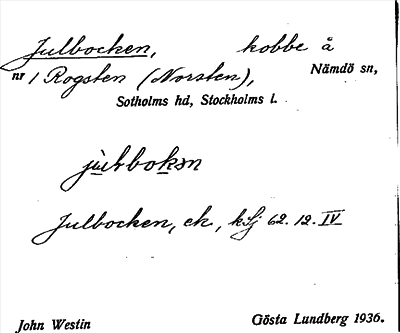 Julbocken, kobbe å
nr 1 Rogsten (Norsten), Nämdö sn,
Sotholms hd, Stockholms l.
Julbocken, ek, 62.12.IV
John Westin Gösta Lundberg 1936.